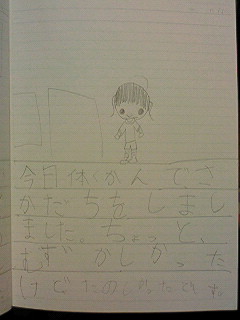 今日休くかんでさ
かだちをしまし
ました。ちょっと、
むずかしかった
けどたのしかったです。